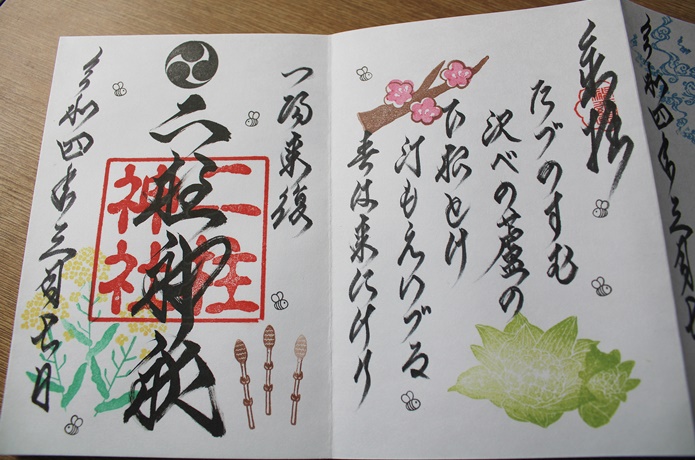 令和四年三月
奉拝
たづのすむ
沢べの蘆の
下根とけ
汀もえいづる
春は来にけり
一陽来復
二柱神社
二柱
神社
令和四年三月七日